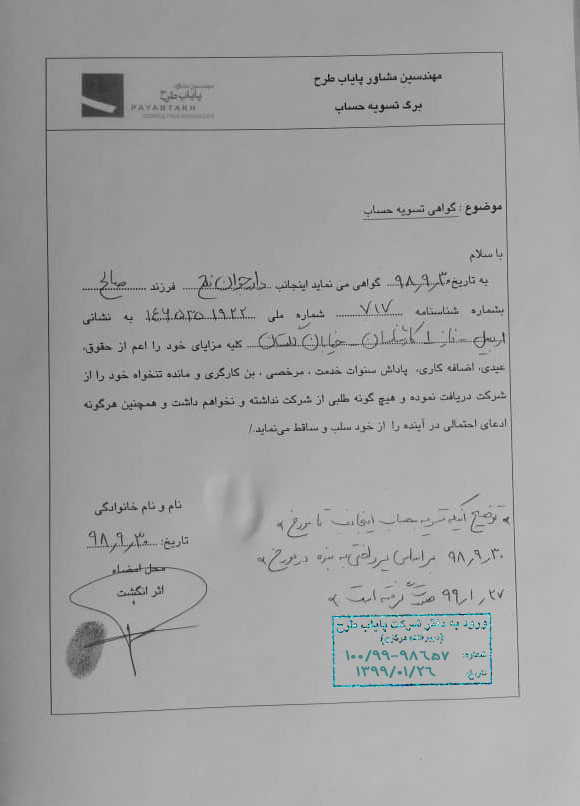 مهندسین مشاور پایاب طرح
برگ تسویه حساب
مهندسین مشاور
پایاب طرح
PAYABTARH
CONSULTING ENGINEERS
موضوع : گواهی تسویه حساب
با سلام
به تاریخ ۹۸٫۹٫۳۰ گواهی می نماید اینجانب فرزند صالح
بشماره شناسنامه ۷۱۷ شماره ملی ۱۴۶۵۲۵۱۹۲۲ به نشانی
اردبیل خیابان کلیه مزایای خود را اعم از حقوق،
عیدی، اضافه کاری، پاداش سنوات خدمت ، مرخصی ، بن کارگری و مانده تنخواه خود را از
شرکت دریافت نموده و هیچ گونه طلبی از شرکت نداشته و نخواهم داشت و همچنین هرگونه
ادعای احتمالی در آینده را از خود سلب و ساقط می‌نماید./
نام و نام خانوادگی
تاریخ: ۹۸٫۹٫۳۰
محل امضاء
اثر انگشت
* توضیح اینکه تسویه حساب اینجانب تا مورخ *
۹۸٫۹٫۳۰ براساس پرداختی به بنده در مورخ *
۹۹٫۱٫۲۷ صورت گرفته است *
ورود به دفتر شرکت پایاب طرح
(دبیرخانه مرکزی)
شماره: ۱۰۰/۹۹-۹۸۶۵۷
تاریخ: ۱۳۹۹/۰۱/۲۶